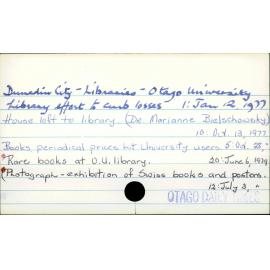 Dunedin City - Libraries - Otago University
Library effort to curb losses 1: Jan 12, 1977
House left to library. (Dr. Marianne Bielschowsky)
10: Oct. 13, 1977
Books, periodical prices hit University users. 5: Oct. 28, "
Rare books at O.U. library. 20: June 6, 1979
(Photograph - exhibition of Swiss books and posters.
12: July 3, "
OTAGO DAILY TIMES